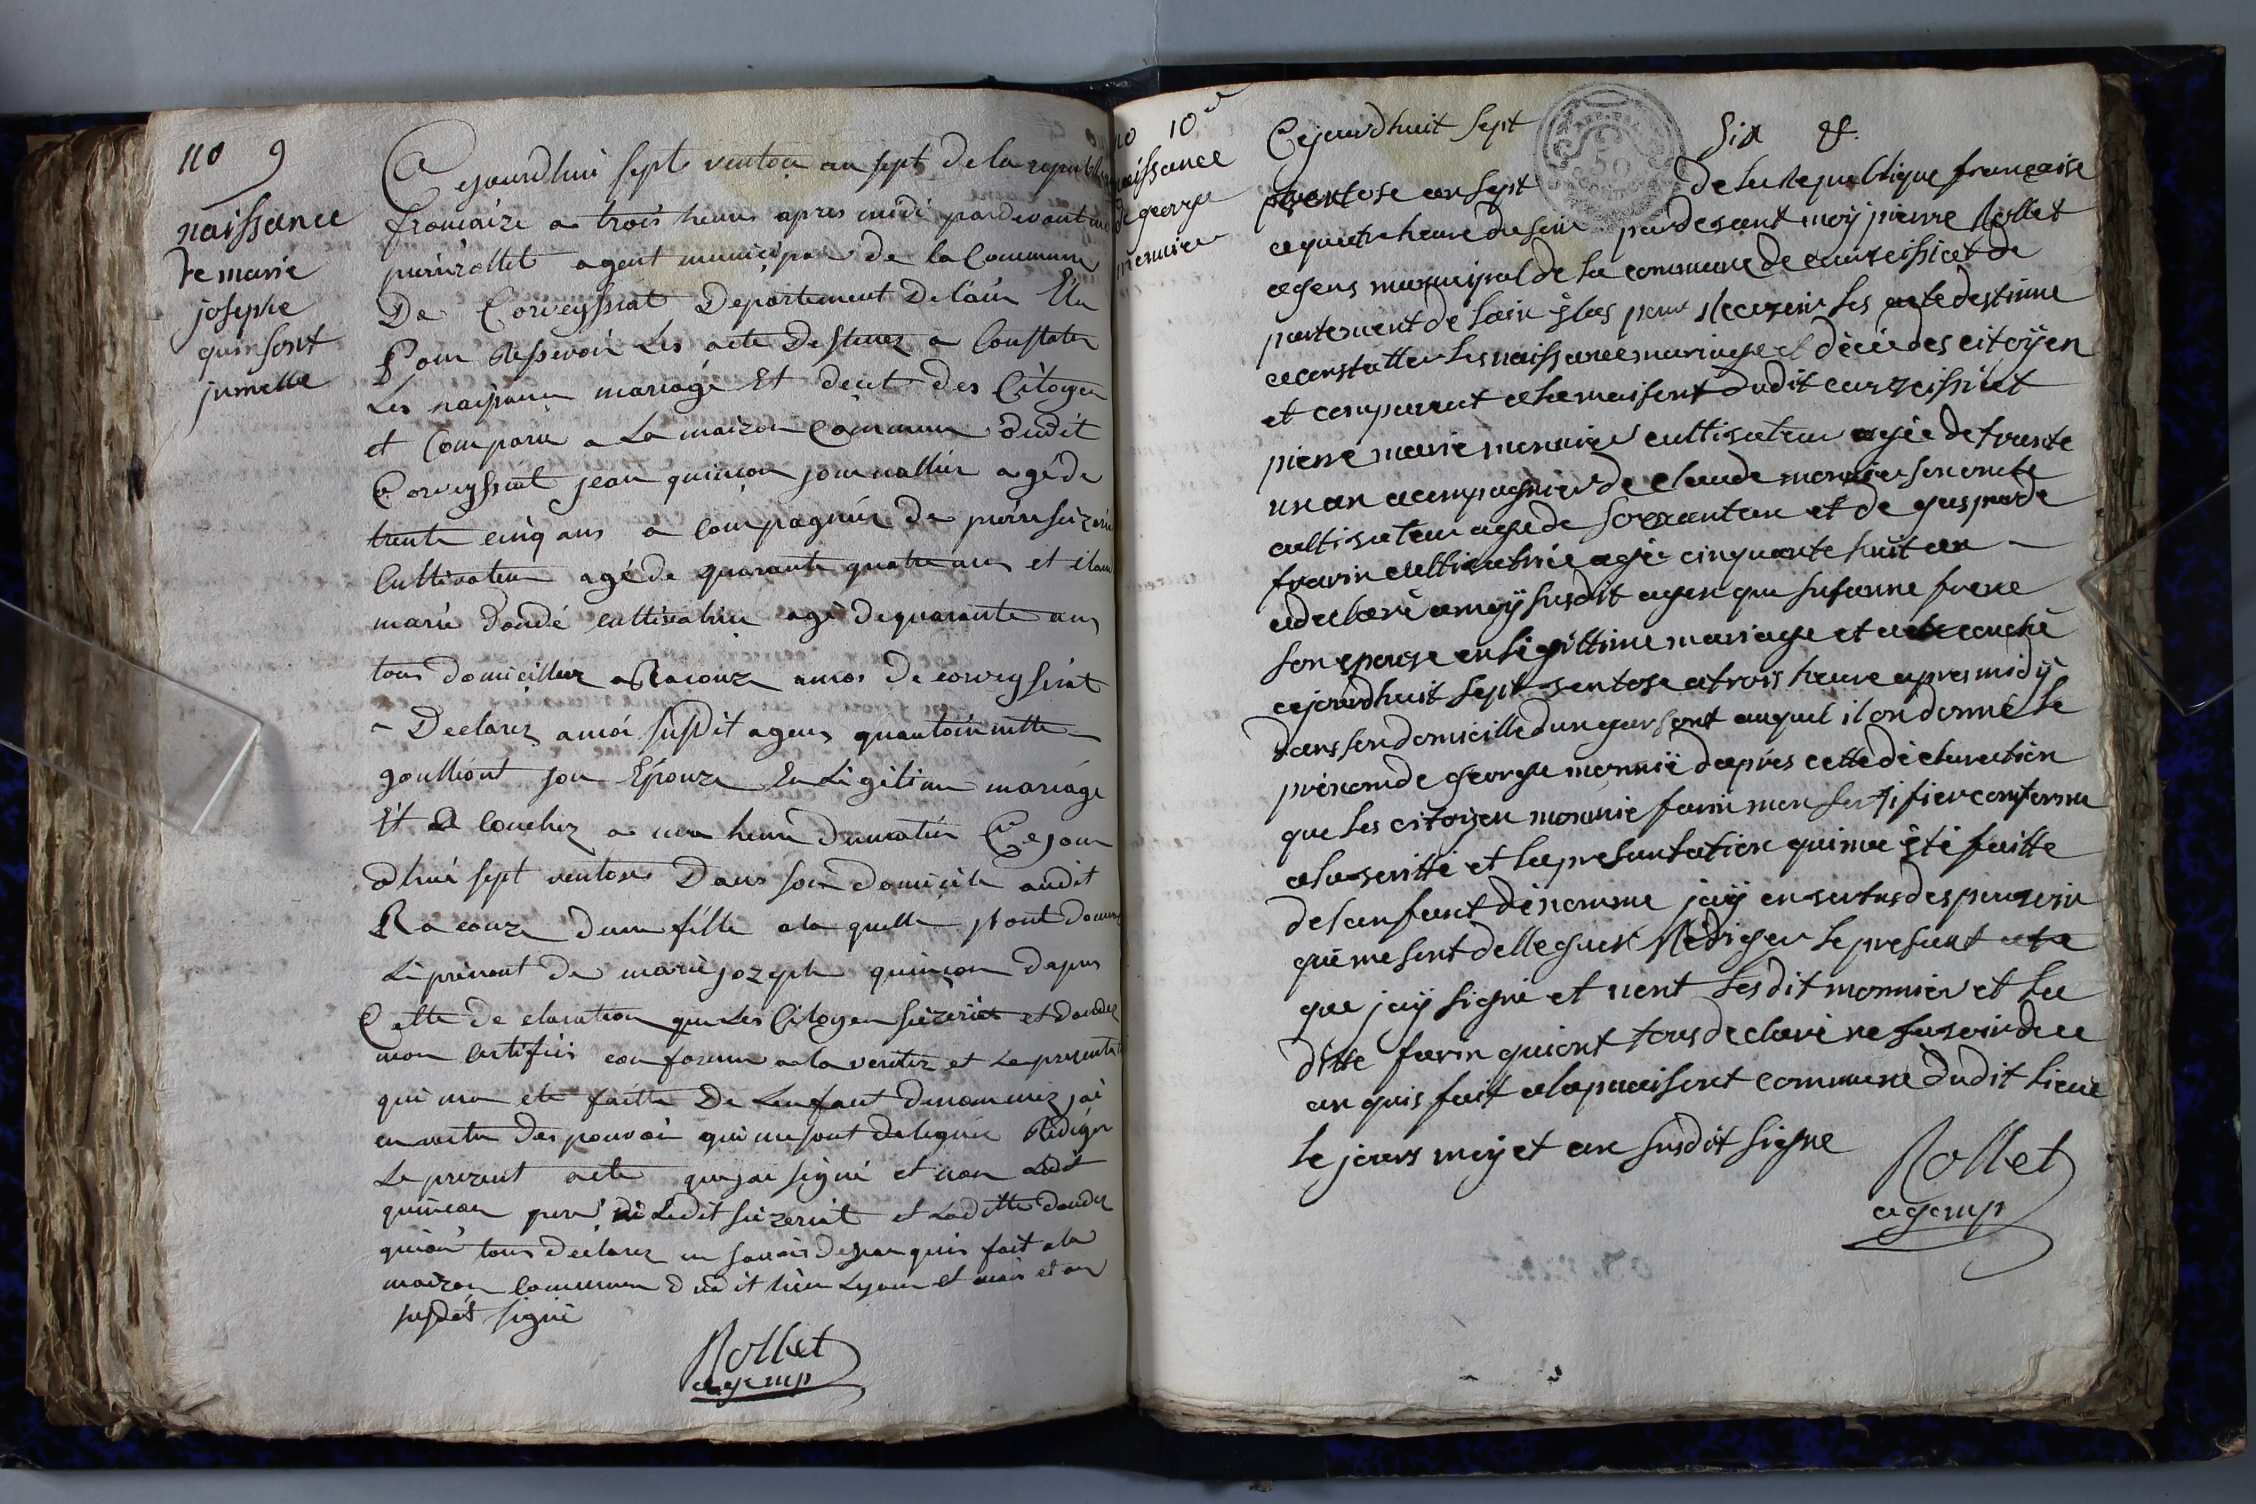 no 9
naissance
de marie
josephe
quinsont
jumelle
Cejourdhui sept ventose an sept de la republique
francaize a trois heures apres midi pardevant moi
pierre rollet agent municipal de la Commune
De Corveyssiat Departement De lain Elu
Pour Ressevoir Les acte Destinez a Constater
Les naissance mariage Et decet des Citoyen
et Comparu a La maizon Commune dudit
Corveyssiat jean quinson journallier agé de
trente cinq ans a compagniez de pierre
Cultivateur agé de quarante quatre ans et
marie doudé cultivatrice agé de quarante ans
tous domicilliez a Racouze de corveyssiat
a Declarez a moi susdit agens quantoinette
goullions son Epouze En Légitime mariage
Et a Couchez a une heure dumatin Ce jour
dhui sept ventose Dans son domicile audit
Racouze dune fille a la quelle il ont donné
Le prenont de marie jozephe quinson dapres
Cette declaration que Les Citoyen et doudez
mon Certifiéz conforme a la veritez et La presentation
qui ma eté faitte De Lenfant denommez jai
en vertu Des pouvoir qui me sont deleguez Rédiger
Le prezent acte que jai signé et non Ledit
quinson pere ni Ledit et Laditte doudez
quion tous déclarez ne savoir de ce enquis fait a la
maizon Commune dudit lieu Lejour et mois et an
susdit signé
Rollet
agemp
no 10e
naissance
de george
monnier
Six
Cejourdhuit sept
ventose an sept de la Republique française
a quatre heure du soir pardevant moÿ pierre Rollet
agens municipal de la commune de courveissiat de
partement de lain élus pour Recevoir les acte destinne
a constatter les naissance mariage et décé des citoÿen
et comparut a la maisont dudit curveissiat
pierre marie monnier cultivateur agée de trante
un an acompagnier de claude monnier son oncle
cultivateur age de soixante an et de gasparde
favrin cultivatrice agée cinquante huit an
a declaré a moÿ susdit agen que susanne frere
son epouse en légittime mariage et acouché
cejourdhuit sept ventose a trois heure apres midÿ
dans son domicille dun garsont auquel il on donné le
prénom de george monnié daprès cette déclaration
que les citoÿen monnie favrin mon sertifier conforme
a la veritté et la presantation qui ma été faitte
de lanfant dénommé jaÿ en vertus des pouvoir
qui me sont dellegués Rédiger le presant acte
que jaÿ signé et nont lesdit monnier et la
ditte favrin quiont tous declaré ne savoir de ce
an quis fait a la maisont commune dudit lieue
le jours moÿ et an susdit signe
Rollet
agemp